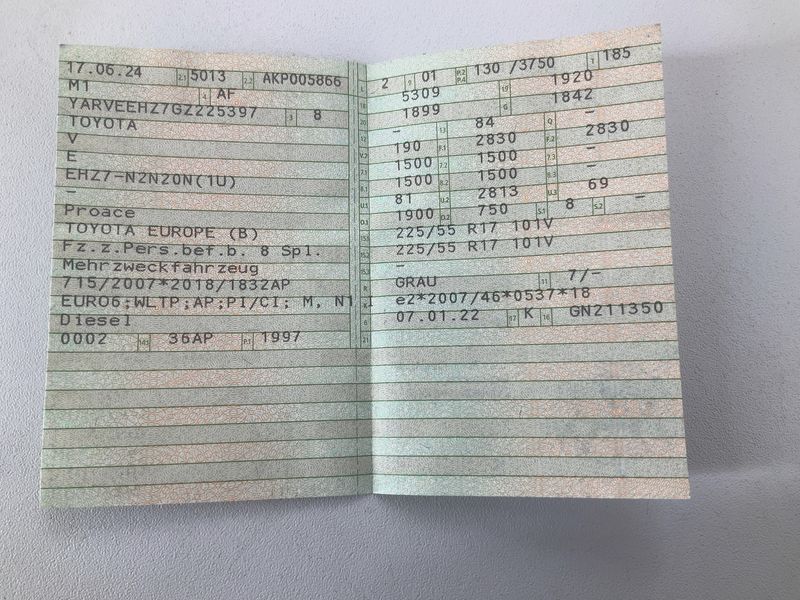 17.06.24 2.1 5013 2.2 AKP005866
M1 4 AF
YARVEEHZ7GZ225397 3 8
TOYOTA
V
E
EHZ7-N2N20N(1U)
–
Proace
TOYOTA EUROPE (B)
Fz.z.Pers.bef.b. 8 Spl.
Mehrzweckfahrzeug
715/2007*2018/1832AP
EURO6;WLTP;AP;PI/CI; M, N1 I
Diesel
0002 14.1 36AP P.1 1997
L 2 9 01 P.2 P.4 130 /3750 T 185
18 5309 19 1920
20 1899 G 1842
12 – 13 84 Q –
V.7 190 F.1 2830 F.2 2830
7.1 1500 7.2 1500 7.3 –
8.1 1500 8.2 1500 8.3 –
U.1 81 U.2 2813 U.3 69
O.1 1900 O.2 750 S.1 8 S.2 –
15.1 225/55 R17 101V
15.2 225/55 R17 101V
15.3 –
R GRAU 11 7/–
K e2*2007/46*0537*18
6 07.01.22 17 K 16 GN211350
21